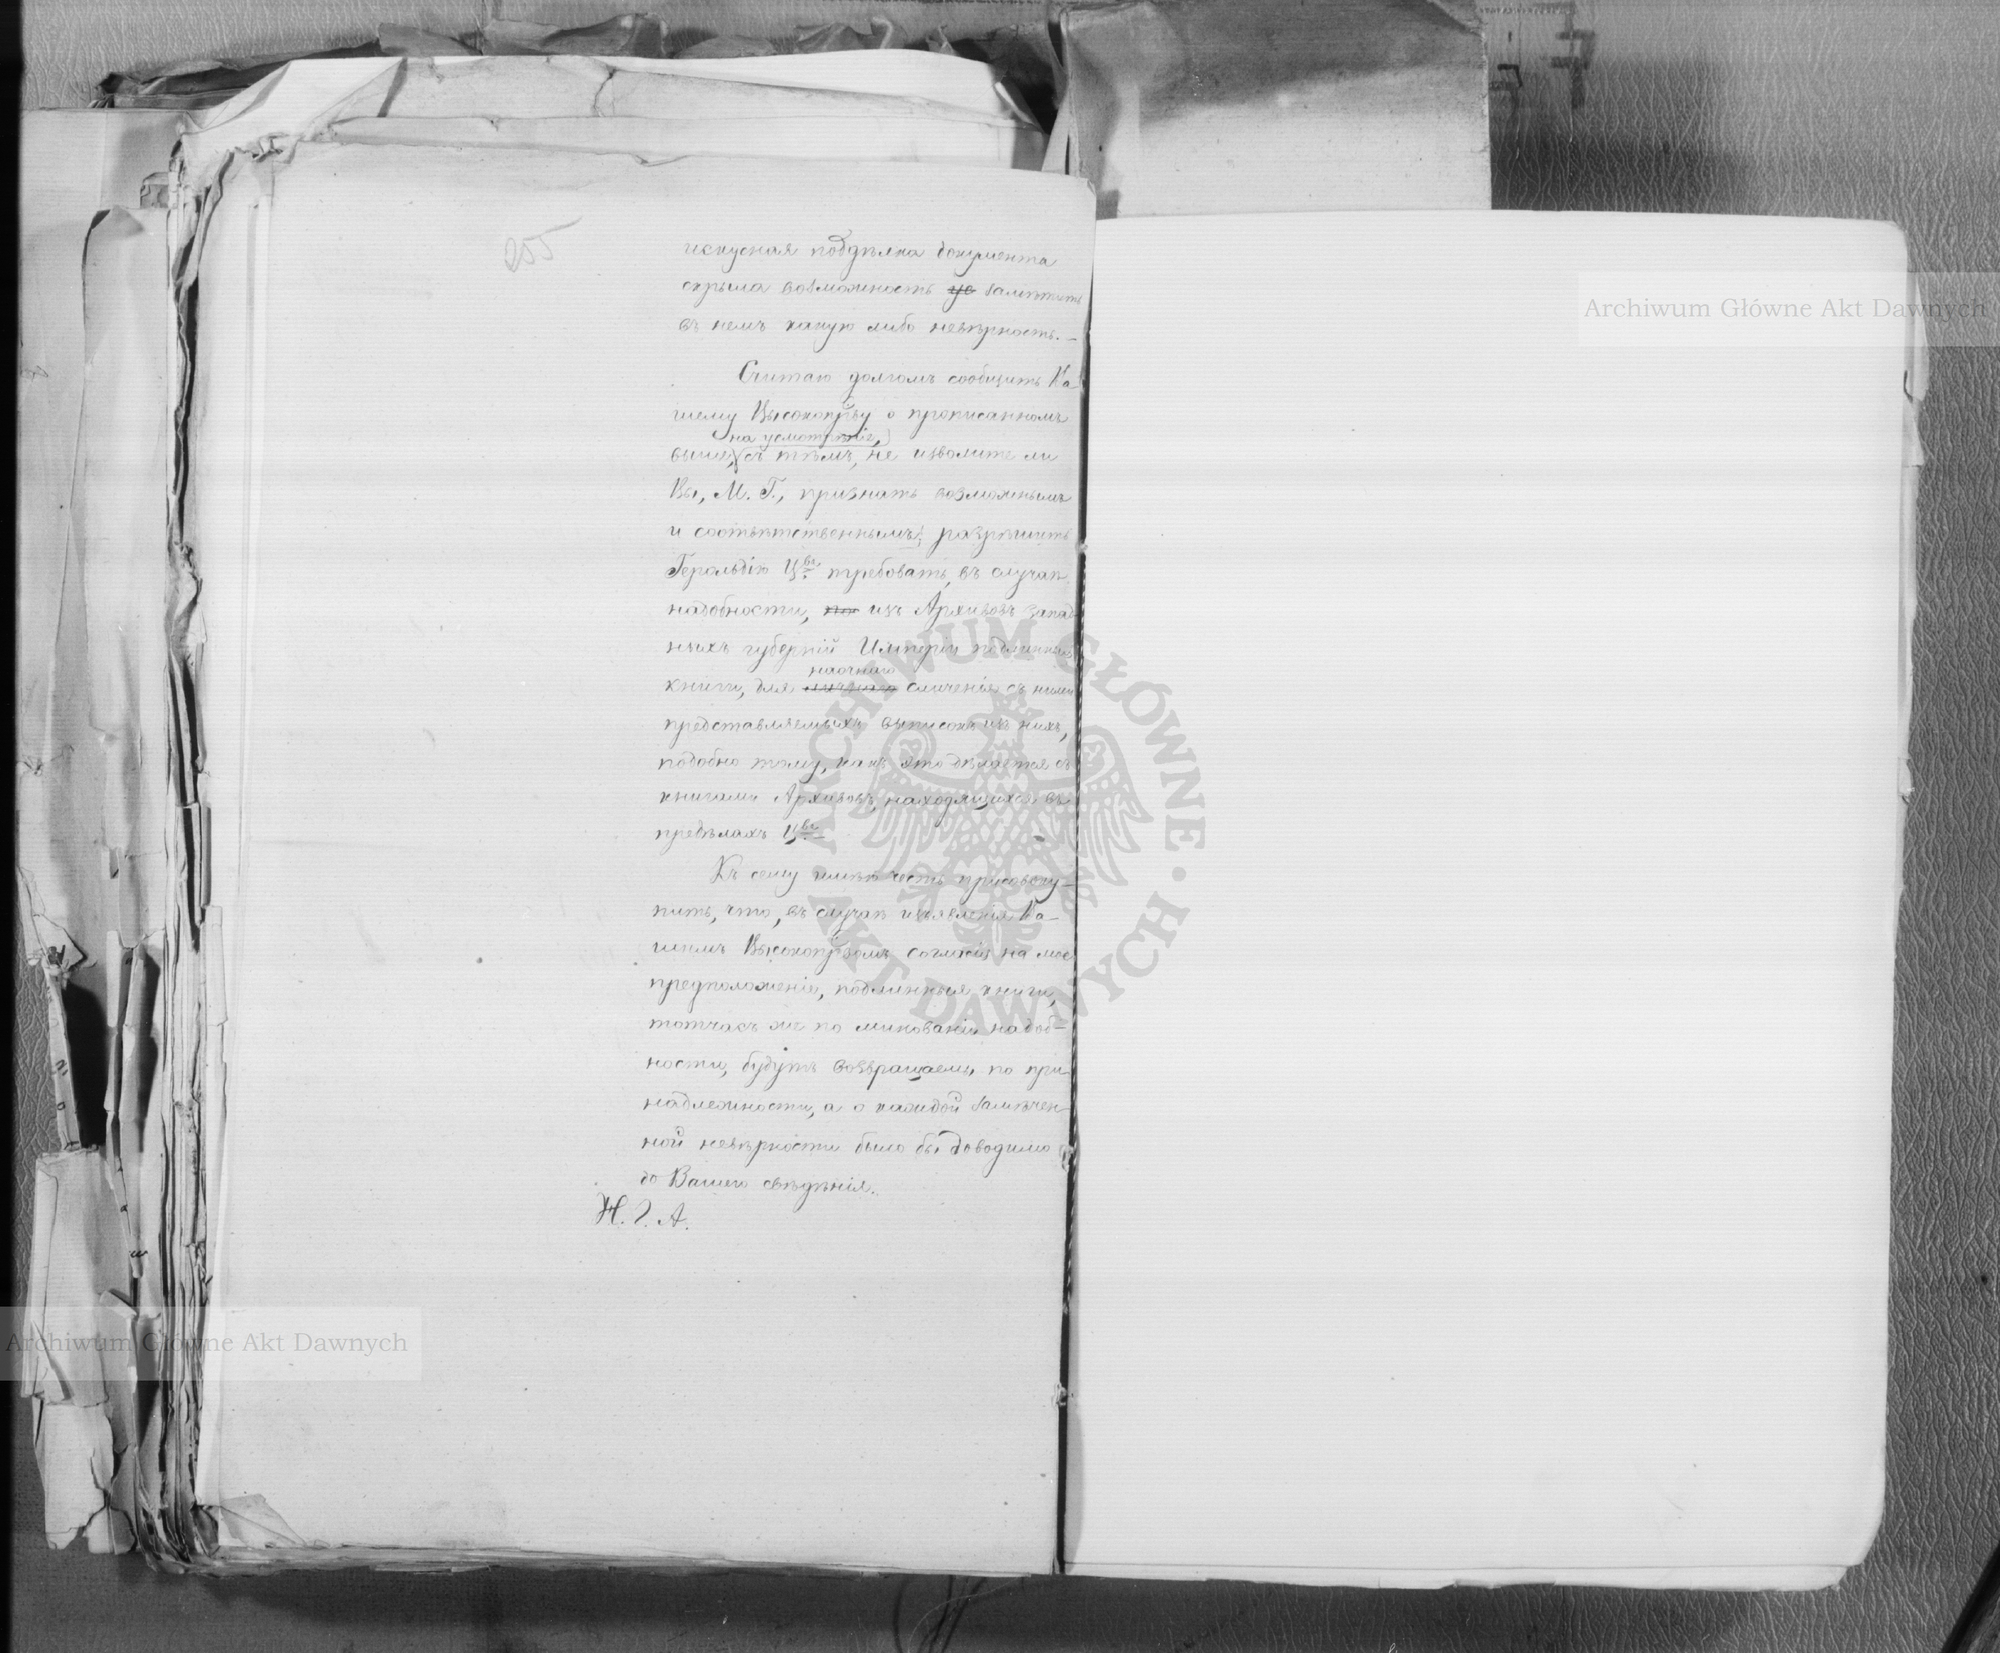 255
искусная поддѣлка документа
скрыла возможность ус замѣтить
въ немъ какую либо невѣрность.–
Считаю долгомъ сообщить Ва
шему Высокопр̃ву о прописанномъ
на усмотрѣніе,
выше, съ тѣмъ, не изволите ли
Вы, М. Г., признать возможнымъ
и соотвѣтственнымъ разрѣшить
Герольдіи Цва требовать, въ случаѣ
надобности, по изъ Архивовъ запад
ныхъ губерній Имперіи подлинныя
наочнаго
книги, для сличенія съ ними
представляемыхъ выписокъ изъ нихъ,
подобно тому, какъ это дѣлается съ
книгами Архивовъ, находящихся въ
предѣлахъ Цва
Къ сему имѣю честь присовоку–
пить, что, въ случаѣ изъявленія Ва–
шимъ Высокопр̃вомъ согласія на мое
предположеніе, подлинныя книги,
тотчасъ же по минованіи надоб–
ности, будутъ возвращаемы по при
надлежности, а о каждой замѣчен
ной невѣрности было бы доводимо
до Вашего свѣдѣнія.
Н. Г. А.
Archiwum Główne Akt Dawnych
Archiwum Główne Akt Dawnych
ARCHIWUM GŁÓWNE AKT DAWNYCH